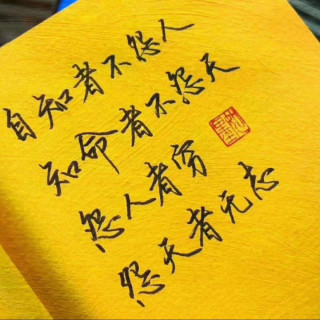 自知者不怨人
知命者不怨天
怨人者穷
怨天者无志